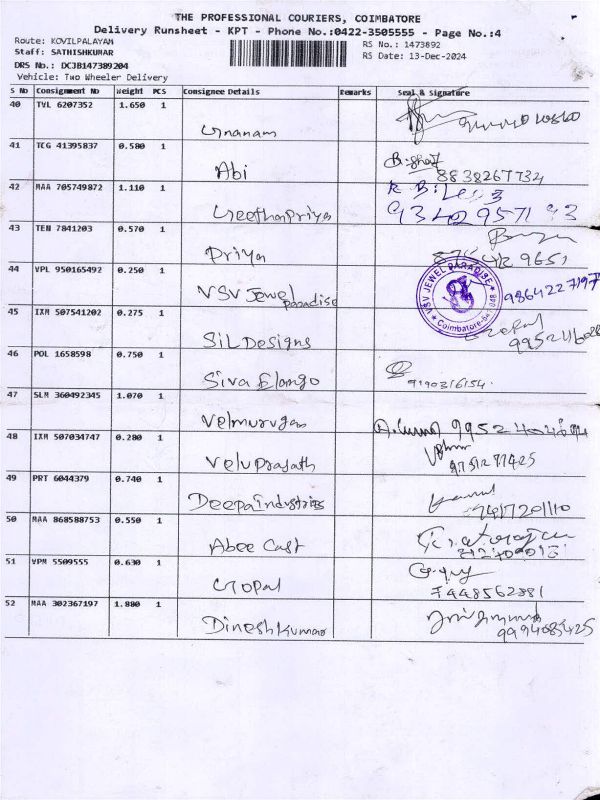 THE PROFESSIONAL COURIERS, COIMBATORE
Delivery Runsheet - KPT - Phone No.:0422-3505555 - Page No.:4
Route: KOVILPALAYAM
RS No.: 1473892
Staff: SATHISHKUMAR
RS Date: 13-Dec-2024
DRS No.: DCJB147389204
Vehicle: Two Wheeler Delivery
S No Consignment No Weight PCS Consignee Details Remarks Seal & Signature
40 TVL 6207352 1.650 1
Gnanam
41 TCG 41395837 0.580 1
Abi 8838267734
42 MAA 705749872 1.110 1
GeethaPriya
43 TEN 7841203 0.570 1
Priya
44 VPL 950165492 0.250 1
VSV Jewel Paradise
VSV JEWEL PARADISE
Coimbatore
9864227197
45 IXM 507541202 0.275 1
SiL Designs
46 POL 1658598 0.750 1
Siva Elango
47 SLM 360492345 1.070 1
Velmurugan
48 IXM 507034747 0.280 1
VeluPrasath 9751277425
49 PRT 6044379 0.740 1
Deepa Industries
50 MAA 868588753 0.550 1
Abee Cast
51 VPM 5509555 0.630 1
Gopal 7448562881
52 MAA 302367197 1.880 1
DineshKumar 9994085425